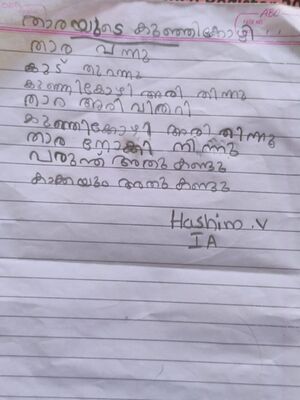 താരയുടെ കുഞ്ഞികോഴി
താര വന്നു
കൂട് തുറന്നു
കുഞ്ഞികോഴി അരി തിന്നു
താര അരി വിതറി
കുഞ്ഞികോഴി അരി തിന്നു
താര നോക്കി നിന്നു
പരുന്ത് അതു കണ്ടു
കാക്കയും അതു കണ്ടു
Hashim.V
IA